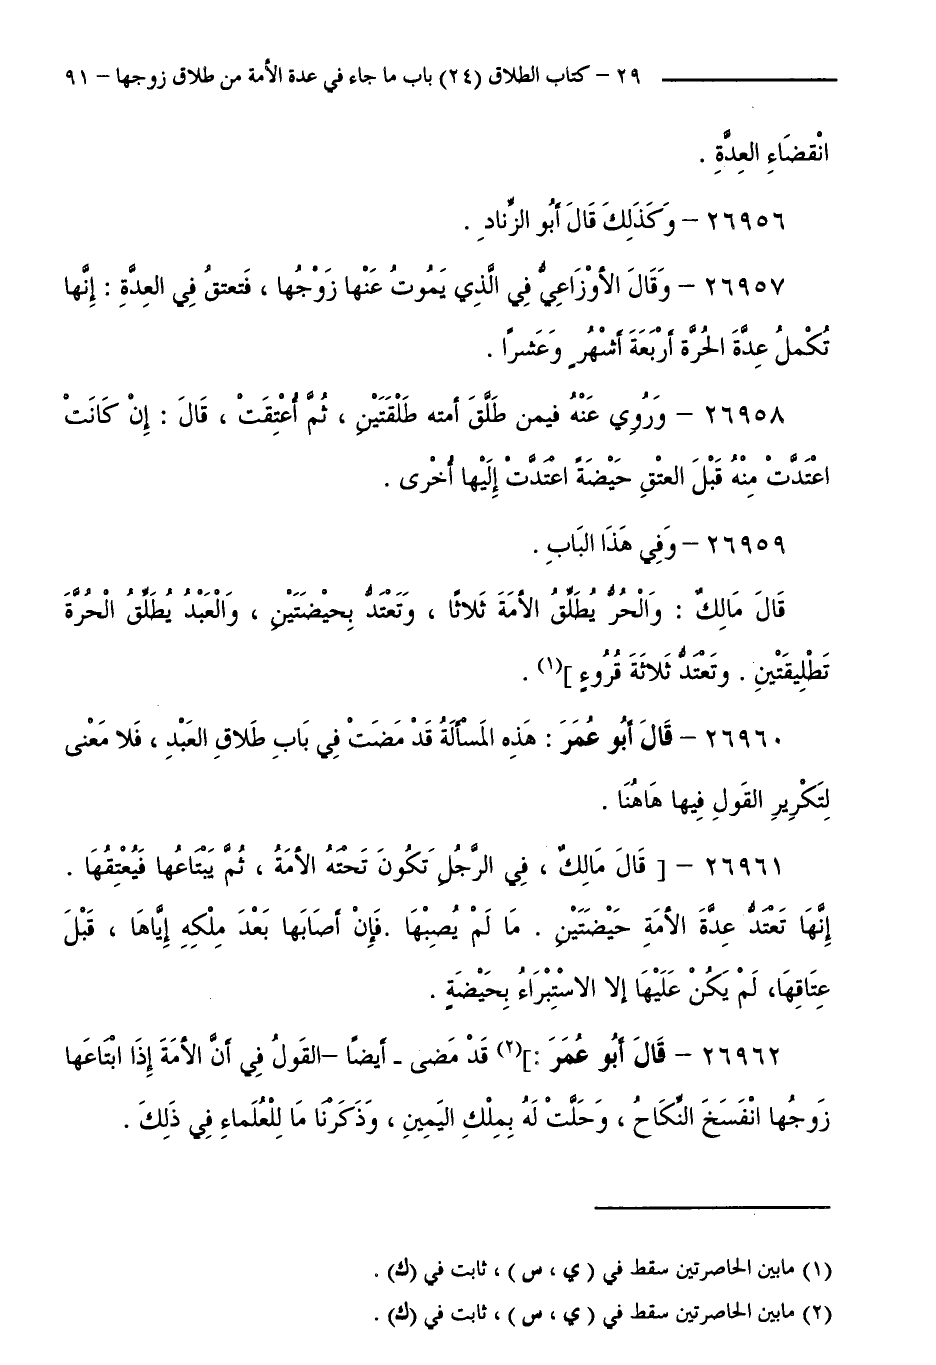 ٢٩ – كتاب الطلاق (٢٤) باب ما جاء في عدة الأمة من طلاق زوجها – ٩١
انْقضَاءِ العِدَّةِ .
٢٦٩٥٦ – وَكَذَلِكَ قَالَ أَبُو الزِّنادِ .
٢٦٩٥٧ – وَقَالَ الأوْزَاعِيُّ فِي الَّذِي يَمُوتُ عَنْها زَوْجُها ، فَتعتقُ فِي العِدَّةِ : إِنَّها
تُكْملُ عِدَّةَ الحُرَّة أرْبَعَةَ أشْهُرٍ وَعَشرًا .
٢٦٩٥٨ – وَرُوِي عَنْهُ فيمن طَلَّقَ أمته طَلْقَتَيْنِ ، ثُمَّ أُعْتِقَتْ ، قَالَ : إِنْ كَانَتْ
اعْتَدَّتْ مِنْهُ قَبْلَ العتْقِ حَيْضَةً اعْتَدَّتْ إِلَيْها أُخْرى .
٢٦٩٥٩ – وَفِي هَذَا البَابِ .
قَالَ مَالِكٌ : وَالْحُرُّ يُطَلِّقُ الأمَةَ ثَلاثًا ، وَتَعْتَدُّ بِحيْضَتَيْنِ ، وَالْعَبْدُ يُطَلِّقُ الْحُرَّةَ
تَطْلِيقَتْينِ . وتَعْتَدُّ ثَلاثَةَ قُرُوءٍ ](١) .
٢٦٩٦٠ – قَالَ أَبُو عُمَرَ : هَذِه المَسْأَلَةُ قَدْ مَضَتْ فِي بَابِ طَلاقِ العَبْدِ ، فَلا مَعْنى
لِتَكْرِيرِ القَولِ فِيها هَاهُنَا .
٢٦٩٦١ – [ قَالَ مَالِكٌ ، فِي الرَّجُلِ تَكُونَ تَحتَهُ الأمَةُ ، ثُمَّ يَبْتَاعُها فَيُعْتِقُهَا .
إِنَّهَا تَعْتَدُّ عِدَّةَ الأمَةِ حَيْضَتَيْنِ . مَا لَمْ يُصِبْهَا .فَإِنْ أصَابَها بَعْدَ مِلْكِهِ إِيَّاهَا ، قَبْلَ
عِتَاقِهَا، لَمْ يَكُنْ عَلَيْهَا إلا الاسْتِبْرَاءُ بِحَيْضَةٍ .
٢٦٩٦٢ – قَالَ أَبُو عُمَرَ :](٢) قَدْ مَضى ـ أيضًا –القَولُ فِي أنَّ الأمَةَ إِذَا ابْتَاعَها
زَوجُها انْفَسَخَ النِّكَاحُ ، وَحَلَّتْ لَهُ بِملْكِ اليَمِينِ ، وَذَكَرْنَا مَا لِلْعُلَماءِ فِي ذَلِكَ .
(١) مابين الحاصرتين سقط في ( ي ، س ) ، ثابت في (ك) .
(٢) مابين الحاصرتين سقط في ( ي ، س ) ، ثابت في (ك) .